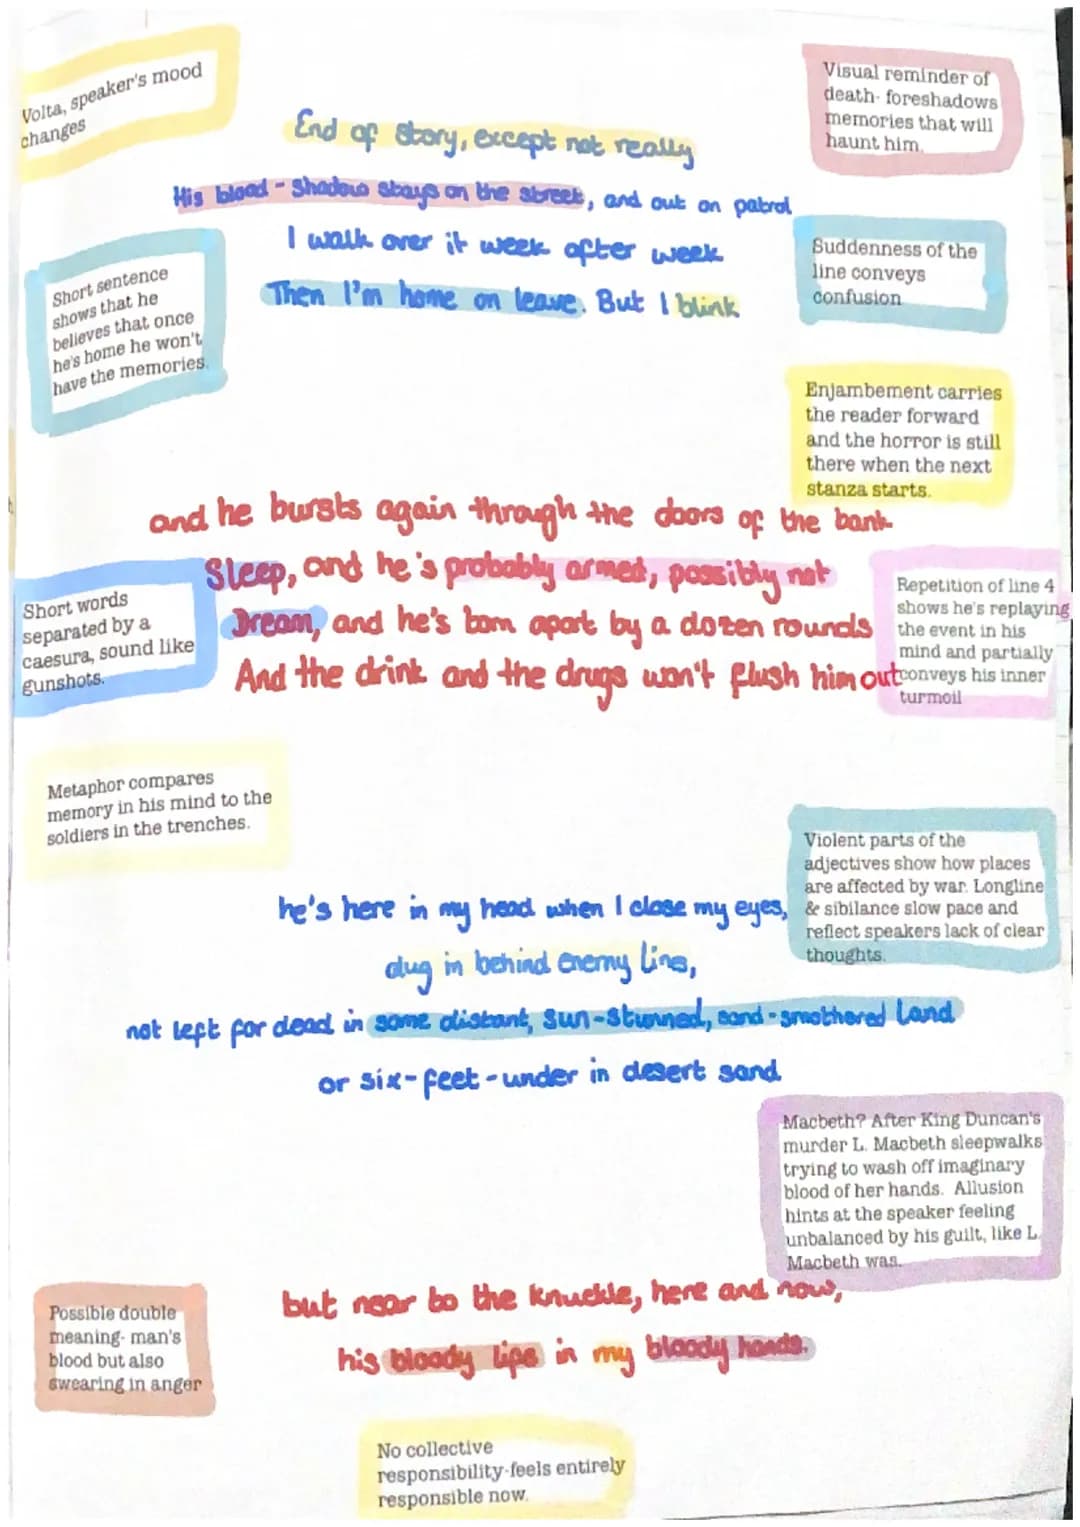 Volta, speaker's mood
changes
Visual reminder of
death- foreshadows
memories that will
haunt him.
End of story, except not really
His blood-shadow stays on the street, and out on patrol
I walk over it week after week
Then I'm home on leave. But I blink
Short sentence
shows that he
believes that once
he's home he won't
have the memories.
Suddenness of the
line conveys
confusion
Enjambement carries
the reader forward
and the horror is still
there when the next
stanza starts.
and he bursts again through the doors of the bank
Sleep, and he's probably armed, possibly not
Dream, and he's torn apart by a dozen rounds
And the drink and the drugs won't flush him out
Short words
separated by a
caesura, sound like
gunshots.
Repetition of line 4
shows he's replaying
the event in his
mind and partially
conveys his inner
turmoil
Metaphor compares
memory in his mind to the
soldiers in the trenches.
Violent parts of the
adjectives show how places
are affected by war. Longline
& sibilance slow pace and
reflect speakers lack of clear
thoughts.
he's here in my head when I close my eyes,
dug in behind enemy line,
not left for dead in some distant, sun-stunned, sand-smothered land
or six-feet-under in desert sand
Macbeth? After King Duncan's
murder L. Macbeth sleepwalks
trying to wash off imaginary
blood of her hands. Allusion
hints at the speaker feeling
unbalanced by his guilt, like L.
Macbeth was.
but near to the knuckle, here and now,
his bloody life in my bloody hands.
Possible double
meaning- man's
blood but also
swearing in anger
No collective
responsibility-feels entirely
responsible now.